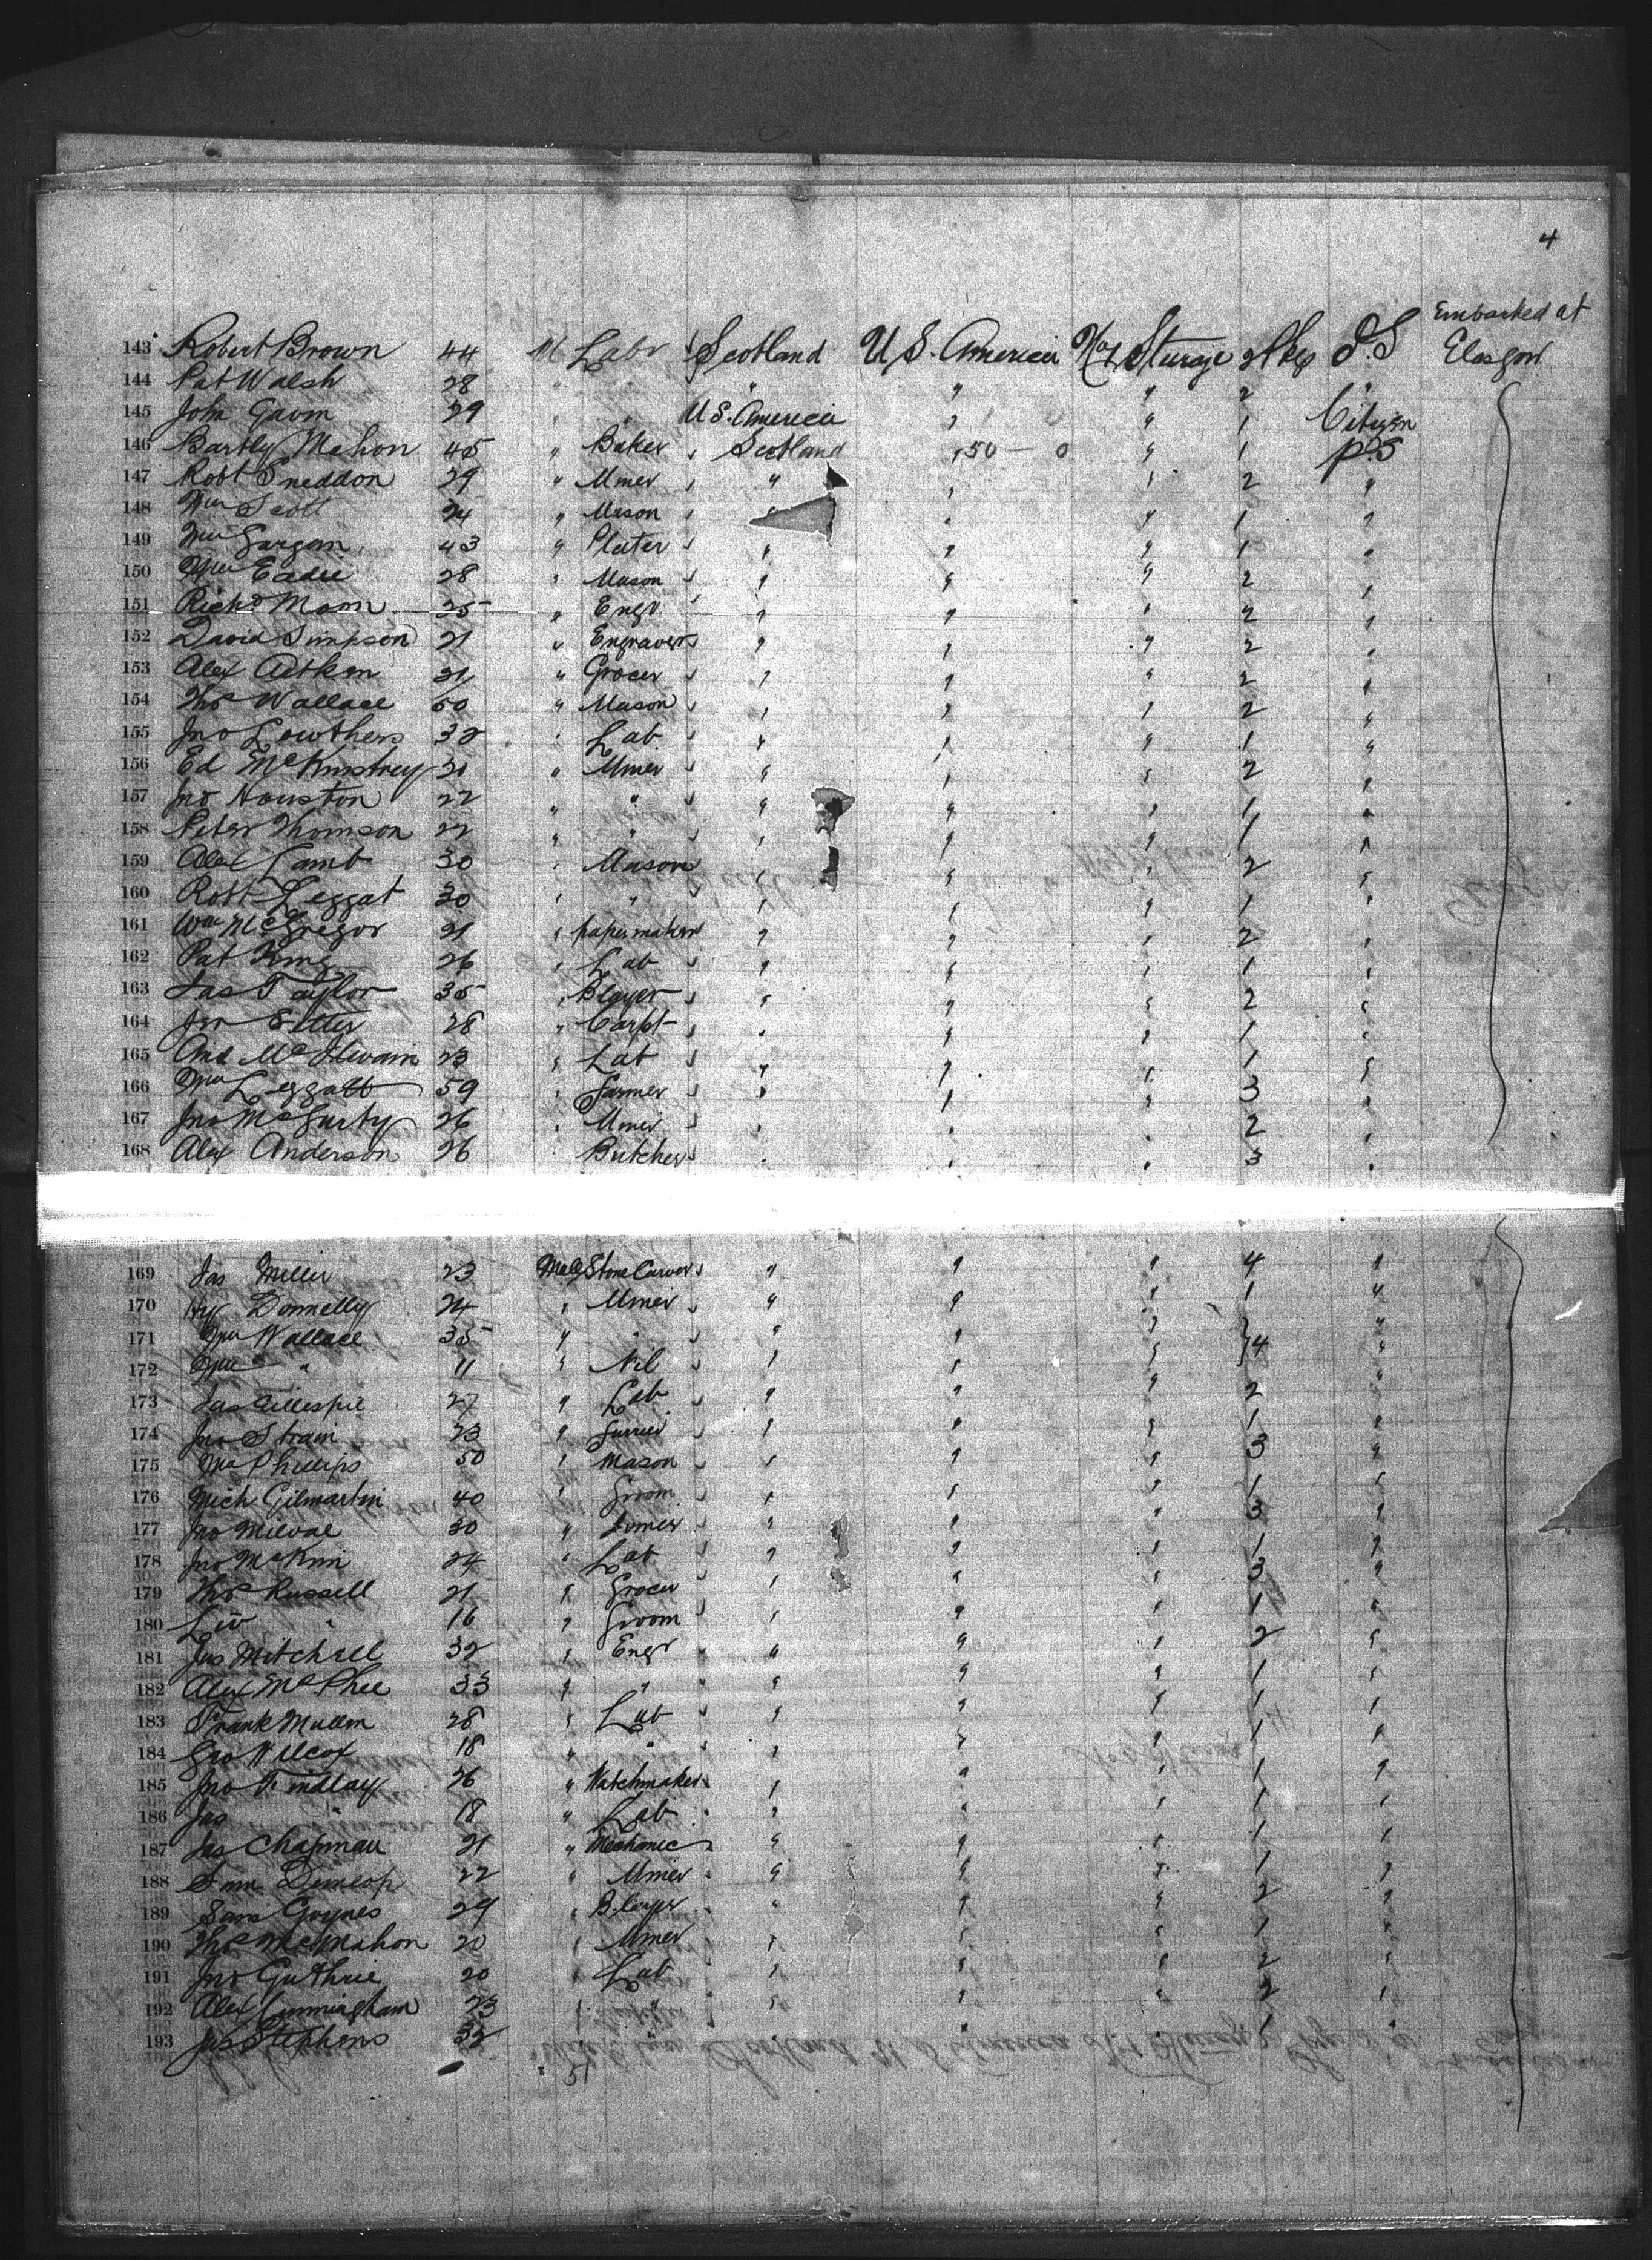 4
Embarked at
143 Robert Brown 44 M Labr Scotland U S. America No 1 Sturage 2 Pkg P.S Glasgow
144 Pat Walsh 28 " " " " " 2 "
145 John Gavin 29 " " U S. America " " 1 Citizen
146 Bartly Mahon 45 " Baker Scotland " 50 - 0 " 1 P.S
147 Robt Sneddon 29 " Miner " " " 2 "
148 Wm Scott 24 " Mason " " 1 "
149 Wm 43 " Plater " " " 1 "
150 Wm Eadie 28 " Mason " " " 2 "
151 Richd Moon 25 " Engr " " " 2 "
152 David Simpson 21 " Engraver " " " 2 "
153 Alex Aitken 31 " Grocer " " " 2 "
154 Thos Wallace 50 " Mason " " " 2 "
155 Jno Lowthers 32 " Lab " " " 1 "
156 Ed McKinstrey 30 " Miner " " " 2 "
157 Jno Houston 22 " " " " " 1 "
158 Peter Thomson 22 " " " " " 1 "
159 Alex Lamb 30 " Mason " " " 2 "
160 Robt Leggat 30 " " " " " 1 "
161 Wm McGregor 21 " papermaker " " " 2 "
162 Pat King 26 " Lab " " " 1 "
163 Jas Taylor 35 " Blayer " " " 2 "
164 Jno 28 " Carpt " " " 1 "
165 And McIlwain 23 " Lab " " " 1 "
166 Wm Leggatt 59 " Farmer " " " 3 "
167 Jno McGurty 26 " Miner " " " 2 "
168 Alex Anderson 26 " Butcher " " " 3 "
169 Jas Miller 23 Male Stone Carver " " " 4 "
170 Hy Donnelly 24 " Miner " " " 1 "
171 Wm Wallace 35 " " " " " } 4 "
172 Wm " 11 " Nil " " " "
173 Jas Gillespie 27 " Lab " " " 2 "
174 Jno Strain 23 " Furrier " " " 1 "
175 Wm Phillips 50 " Mason " " " 3 "
176 Mich Gilmartin 40 " Groom " " " 1 "
177 Jno 30 " Joiner " " " 3 "
178 Jno McKim 24 " Lab " " " 1 "
179 Thos Russell 21 " Grocer " " " 3 "
180 " 16 " Groom " " " 1 "
181 Jas Mitchell 32 " Engr " " " 2 "
182 Alex McPhee 33 " " " " " 1 "
183 Frank Mullen 28 " Lab " " " 1 "
184 Geo Wilcox 18 " " " " " 1 "
185 Jno Findlay 26 " Watchmaker " " " 1 "
186 Jas " 18 " Lab " " " 1 "
187 Jas Chapman 21 " Mechanic " " " 1 "
188 Sam Dunlop 22 " Miner " " " 1 "
189 Sam Goynes 29 " B.layer " " " 2 "
190 Thos McMahon 20 " Miner " " " 1 "
191 Jno Guthrie 20 " Lab " " " 2 "
192 Alex Cunningham 23 " " " " " 2 "
193 Jas Stephens 32 " " " " " 1
51